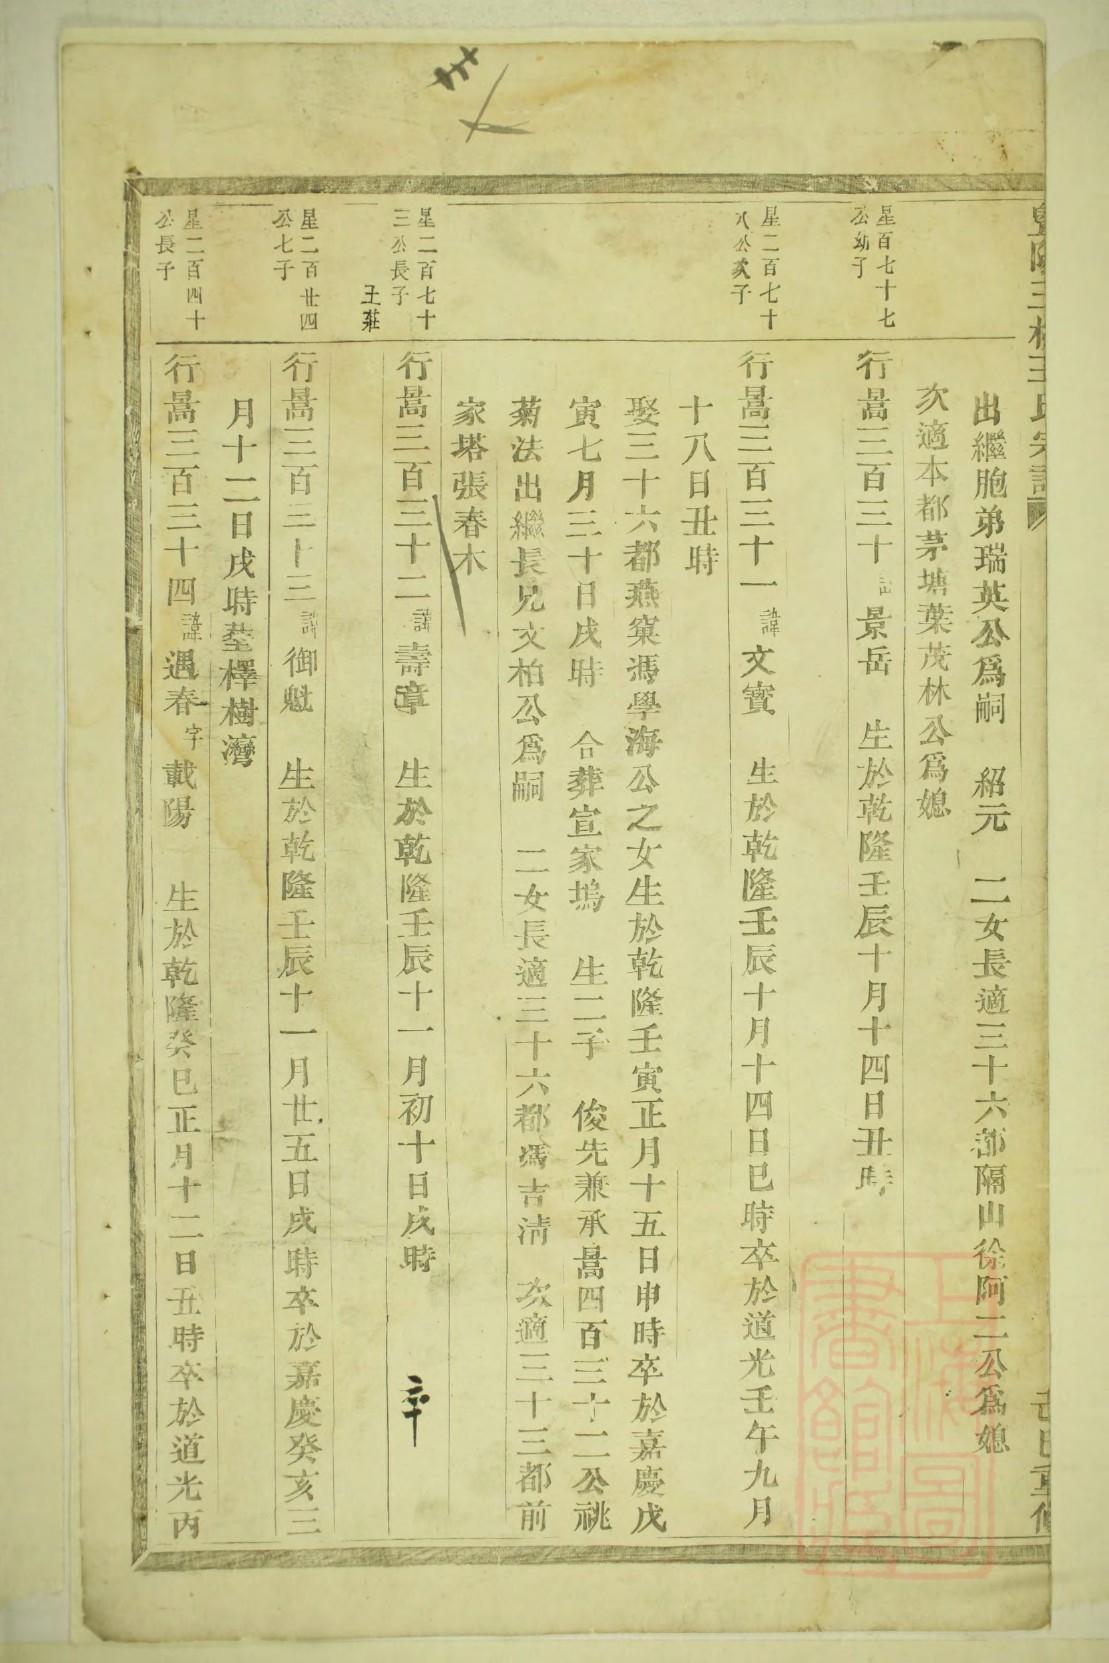 出繼胞弟瑞英公爲嗣 紹元 二女長適三十六都隔山徐阿二公爲媳
次適本都茅塘葉茂林公爲媳
星百七十七
公幼子
行暠三百三十 景岳 生於乾隆壬辰十月十四日丑時
星二百七十
八公次子
行暠三百三十一 諱 文寶 生於乾隆壬辰十月十四日巳時卒於道光壬午九月
十八日丑時
娶三十六都燕窠馮學海公之女生於乾隆壬寅正月十五日申時卒於嘉慶戊
寅七月三十日戌時 合葬宣家塢 生二子 俊先兼承暠四百三十二公祧
菊法出繼長兄文柏公爲嗣 二女長適三十六都馮吉淸 次適三十三都前
家塔張春木
星二百七十
三公長子
王莊
行暠三百三十二 諱 壽章 生於乾隆壬辰十一月初十日戌時 卒
星二百廿四
公七子
行暠三百三十三 諱 御魁 生於乾隆壬辰十一月廿五日戌時卒於嘉慶癸亥三
月十二日戌時塟檡樹灣
星二百四十
公長子
行暠三百三十四 諱 遇春 字 載陽 生於乾隆癸巳正月十二日丑時卒於道光丙